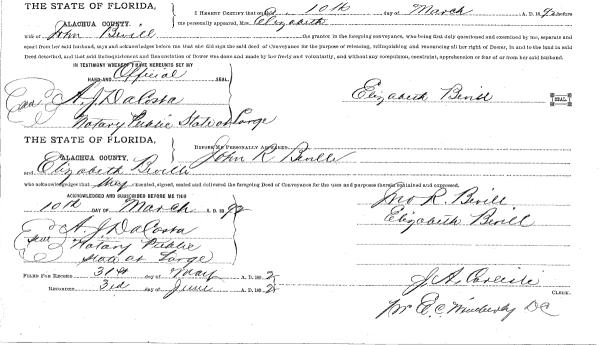 THE STATE OF FLORIDA,
ALACHUA COUNTY.
I HEREBY CERTIFY that on 10th day of March A. D. 1892 before
me personally appeared, Mrs. Elizabeth
wife of John Bevill the grantor in the foregoing conveyance, who being first duly questioned and examined by me, separate and
apart from her said husband, says and acknowledges before me that she did sign the said deed of Conveyance for the purpose of releasing, relinquishing and renouncing all her right of Dower, in and to the land in said
Deed described, and that said Relinquishment and Renunciation of Dower was done and made by her freely and voluntarily, and without any compulsion, constraint, apprehension or fear of or from her said husband.
IN TESTIMONY WHEREOF I HAVE HEREUNTO SET MY
HAND AND Official SEAL
A. J. DaCosta
Notary Public State at Large
Elizabeth Bevill
SEAL
THE STATE OF FLORIDA,
ALACHUA COUNTY.
BEFORE ME PERSONALLY APPEARED John R Beville
and Elizabeth Beville
who acknowledges that they executed, signed, sealed and delivered the foregoing Deed of Conveyance for the uses and purposes therein contained and expressed.
ACKNOWLEDGED AND SUBSCRIBED BEFORE ME THIS
10th DAY OF March A. D. 1892
Jno R. Bevill
Elizabeth Bevill
Seal
A. J. DaCosta
Notary Public
State at Large
FILED FOR RECORD 31st day of May A. D. 1892
RECORDED 3rd day of June A. D. 1892
J. A. Carlisle
CLERK.
Per E. C. Wimberly DC